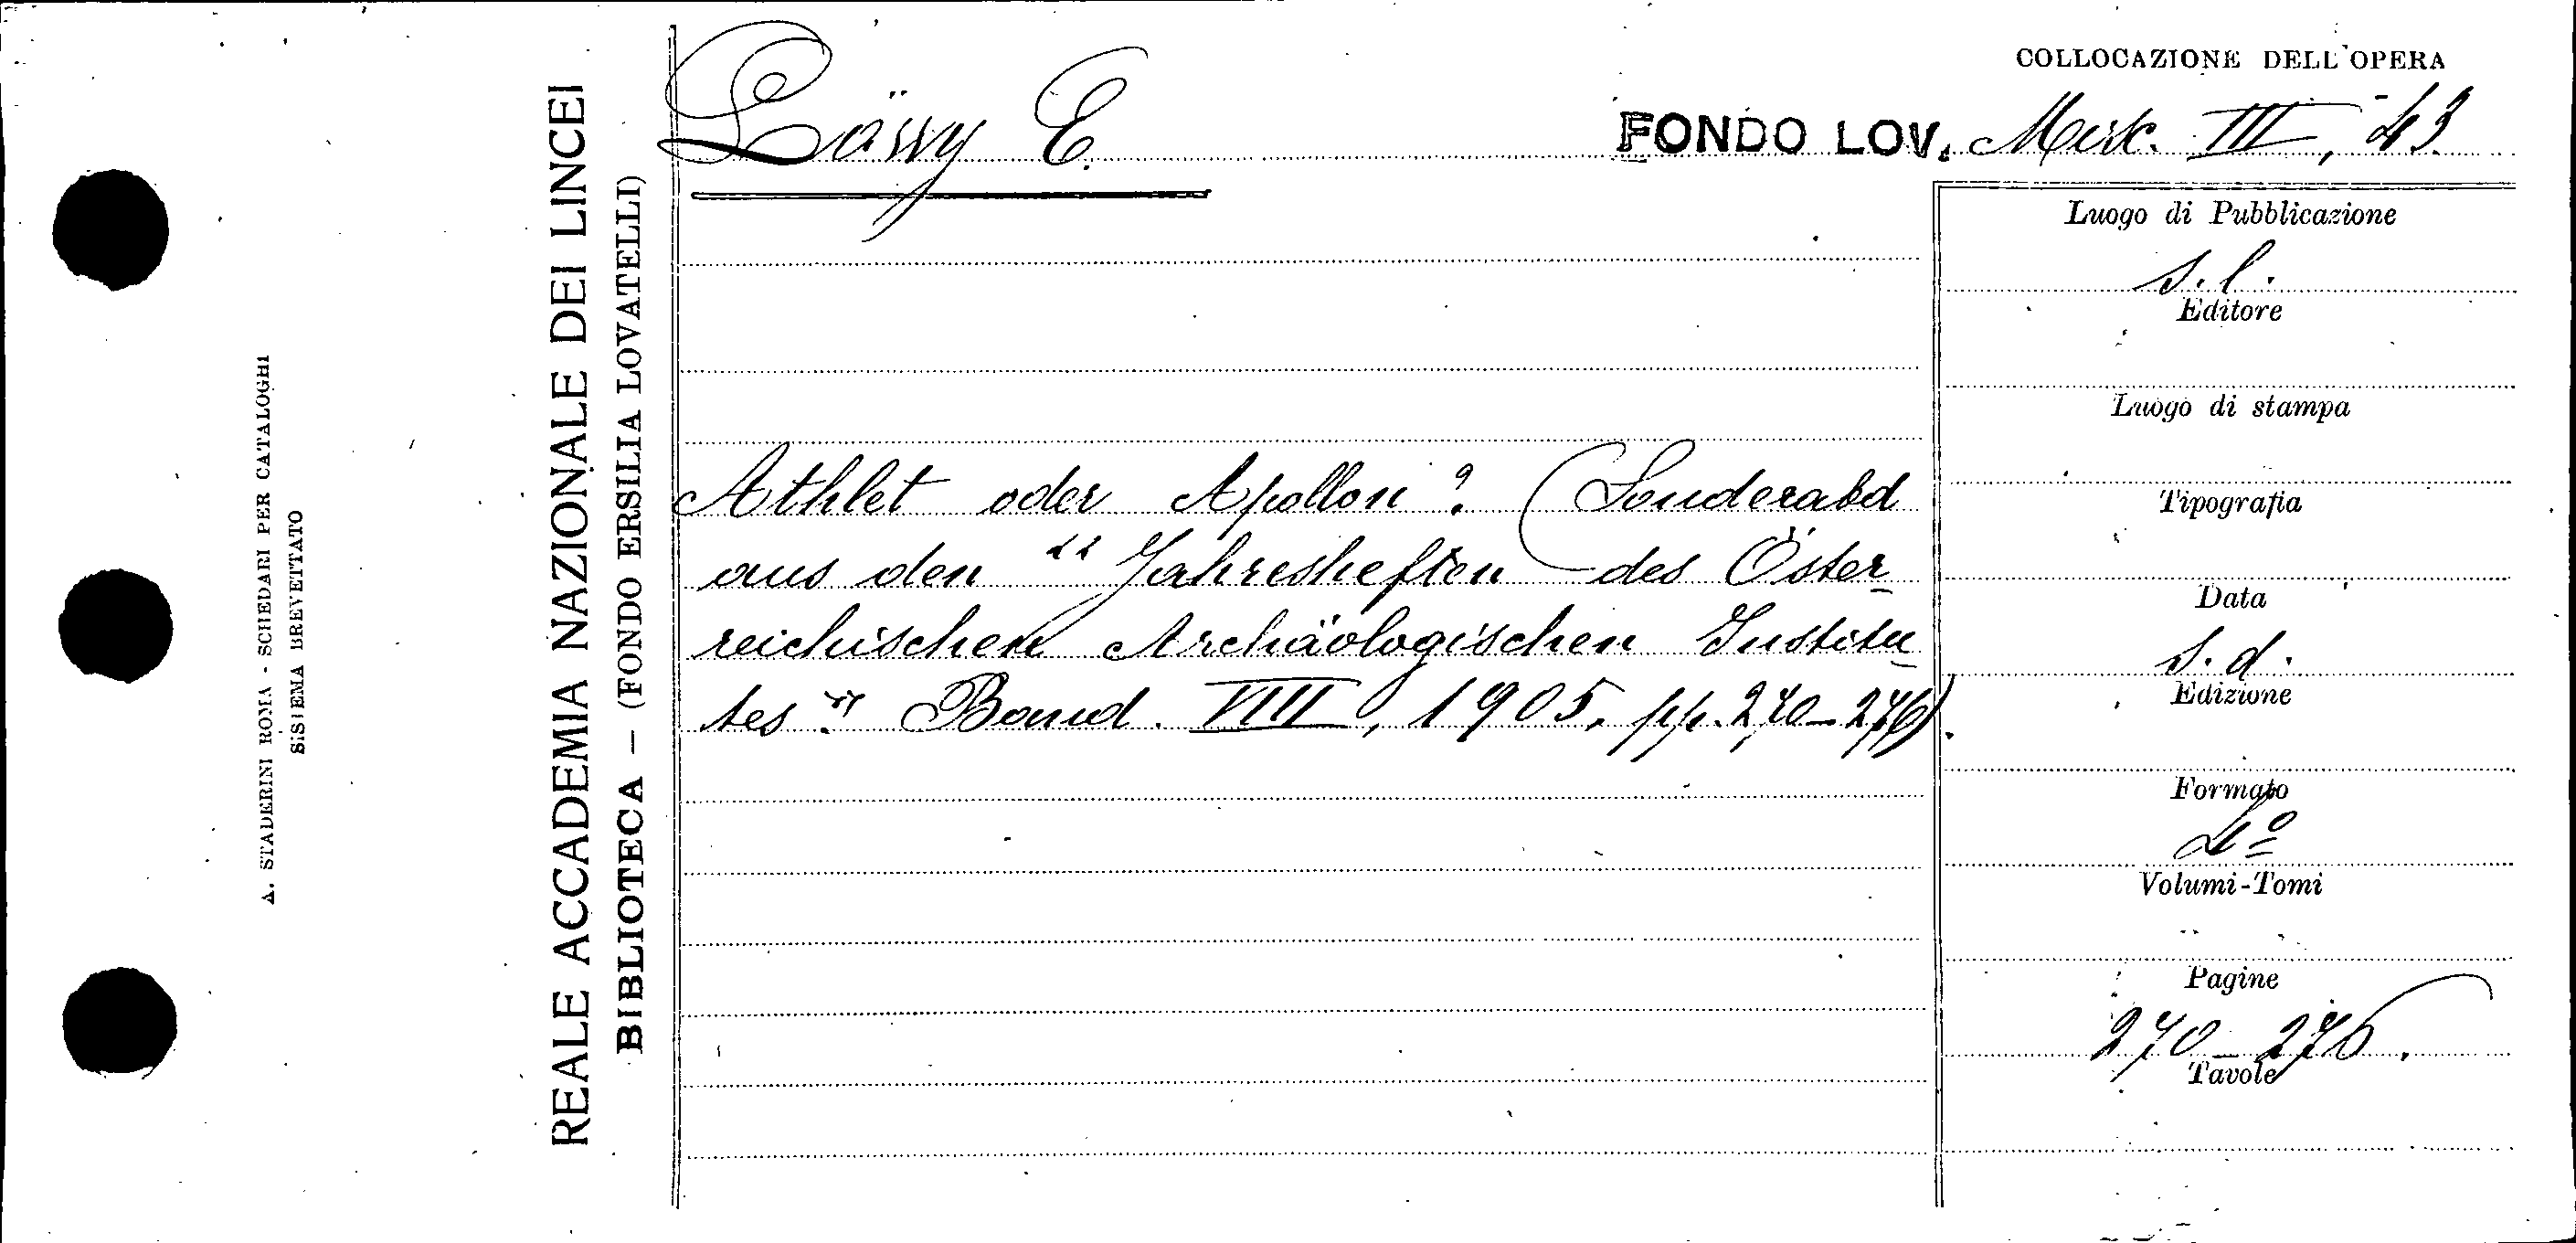 COLLOCAZIONE DELL'OPERA
Löwy E.
FONDO LOV. Misc. III, 43
A. STADERINI ROMA - SCHEDARI PER CATALOGHI
SISTEMA BREVETTATO
REALE ACCADEMIA NAZIONALE DEI LINCEI
BIBLIOTECA — (FONDO ERSILIA LOVATELLI)
Athlet oder Apollon? (Sonderabd
aus den "Jahresheften des Öster
reichischen Archäologischen Institu
tes" Band. VIII, 1905, pp. 270-276).
Luogo di Pubblicazione
s.l.
Editore
Luogo di stampa
Tipografia
Data
s.d.
Edizione
Formato
4º
Volumi-Tomi
Pagine
270-276.
Tavole